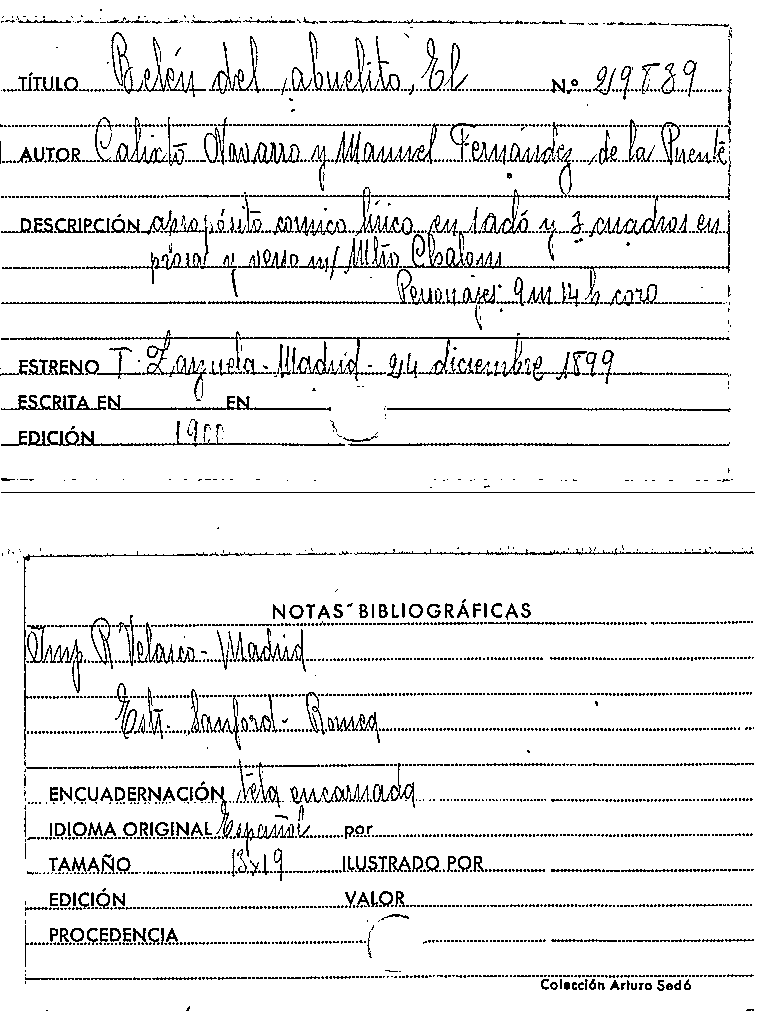 TÍTULO Belén del abuelito, El N.º 219789
AUTOR Calixto Navarro y Manuel Fernández de la Puente
DESCRIPCIÓN apropósito comico lírico en 1 acto y 3 cuadros en
prosa y verso m/ Mtro Chalons
Personajes: 9 m 14 h coro
ESTRENO T. Zarzuela - Madrid - 24 diciembre 1899
ESCRITA EN EN
EDICIÓN 1900
NOTAS BIBLIOGRÁFICAS
Imp R Velasco - Madrid
Estr. Sanford - Romea
ENCUADERNACIÓN tela encarnada
IDIOMA ORIGINAL Español por
TAMAÑO 13x19 ILUSTRADO POR
EDICIÓN VALOR
PROCEDENCIA
Colección Arturo Sedó